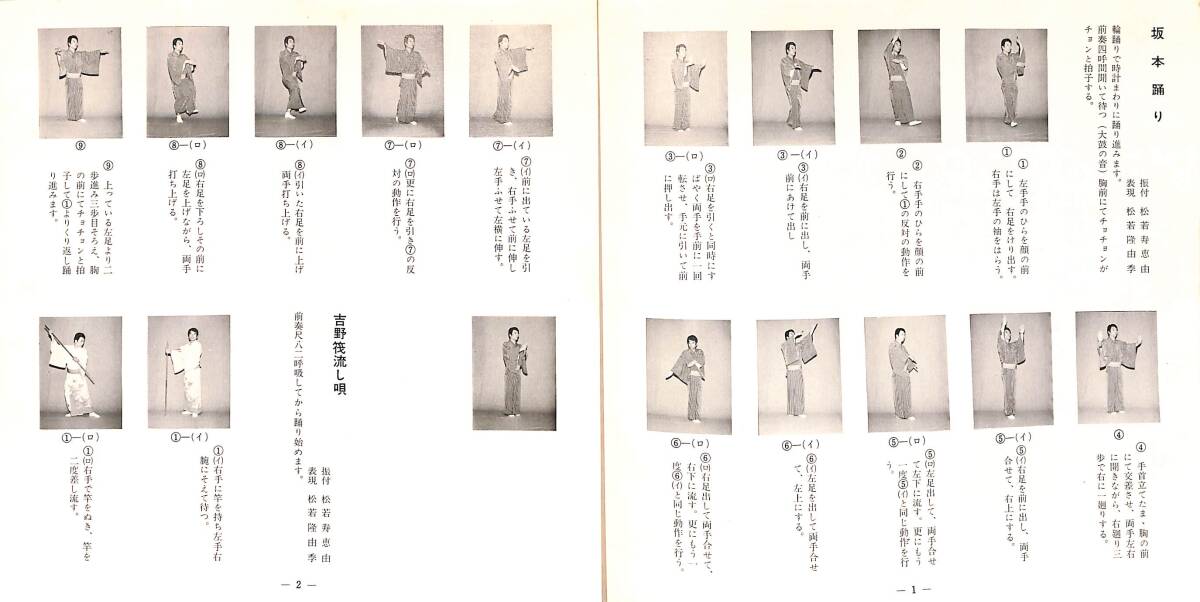 坂本踊り
振付　松若寿恵由
表現　松若隆由季
輪踊りで時計まわりに踊り進みます。
前奏四呼間開いて待つ（大鼓の音）胸前にてチョンチョンが
チョンと拍子する。
①
①　左手手のひらを顔の前
にして　右足をけり出す。
右手は左手の袖をはらう。
②
②　右手手のひらを顔の前
にして①の反対の動作を
行う。
③―(イ)
③(イ)右足を前に出し、両手
前にあけて出し
③―(ロ)
③(ロ)右足を引くと同時にす
ばやく両手を手前に一回
転させ、手元に引いて前
に押し出す。
④
④　手首立てたまゝ胸の前
にて交差させ、両手左右
に開きながら、右廻り三
歩で右に一廻りする。
⑤―(イ)
⑤(イ)右足を前に出し、両手
合せて、右上にする。
⑤―(ロ)
⑤(ロ)左足出して、両手合せ
て左下に流す。更にもう
一度⑤(イ)と同じ動作を行
う。
⑥―(イ)
⑥(イ)左足を出して両手合せ
て、左上にする。
⑥―(ロ)
⑥(ロ)右足出して両手合せて、
右下に流す。更にもう一
度⑥(イ)と同じ動作を行う。
― 1 ―
⑦―(イ)
⑦(イ)前に出ている左足を引
き、右手ふせて前に伸し
左手ふせて左横に伸す。
⑦―(ロ)
⑦(ロ)更に右足を引き⑦の反
対の動作を行う。
⑧―(イ)
⑧(イ)引いた右足を前に上げ
両手打ち上げる。
⑧―(ロ)
⑧(ロ)右足を下ろしその前に
左足を上げながら、両手
打ち上げる。
⑨
⑨　上っている左足より二
歩進み三歩目そろえ、胸
の前にてチョチョンと拍
子して①よりくり返し踊
り進みます。
吉野筏流し唄
振付　松若寿恵由
表現　松若隆由季
前奏尺八二呼吸してから踊り始めます。
①―(イ)
①(イ)右手に竿を持ち左手右
腕にそえて待つ。
①―(ロ)
①(ロ)右手で竿をぬき、竿を
二度差し流す。
― 2 ―